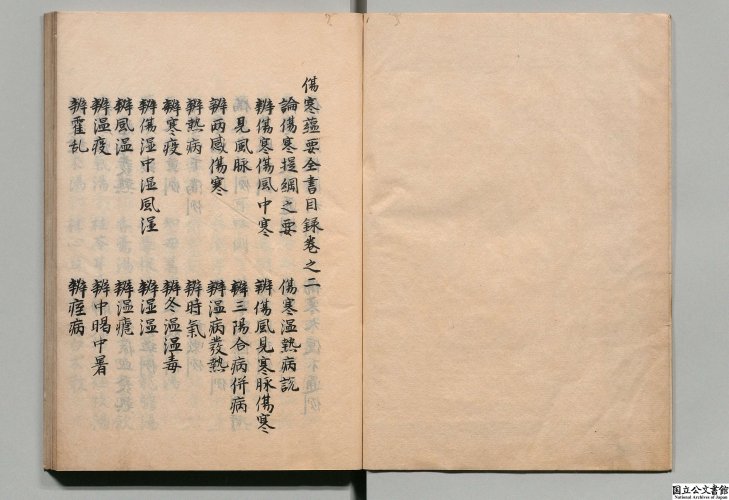 傷寒蘊要全書目錄卷之二
論傷寒提綱之要 傷寒温熱病説
辨傷寒傷風中寒 辨傷風見寒脉傷寒
見風脉 辨三陽合病併病
辨兩感傷寒 辨温病發熱
辨熱病 辨時氣
辨寒疫 辨冬温温毒
辨傷濕中湿風湿 辨湿温
辨風温 辨温瘧
辨温疫 辨中暍中暑
辨霍乱 辨痓病
国立公文書館
National Archives of Japan